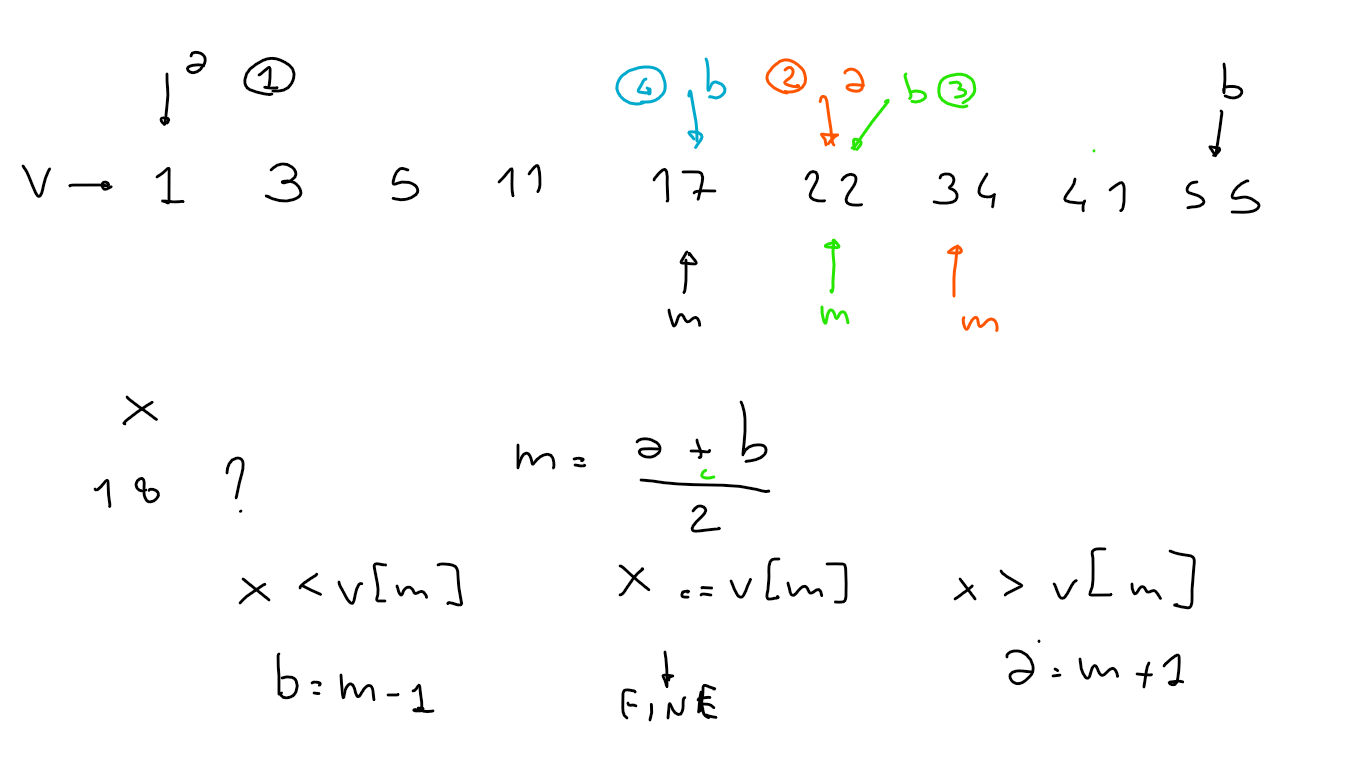 a ① ④ b ② a b ③ b
V → 1 3 5 11 17 22 34 41 55
m m m
x
18 ?
m = a + b
2
x < v[m] x == v[m] x > v[m]
b = m - 1 FINE a = m + 1